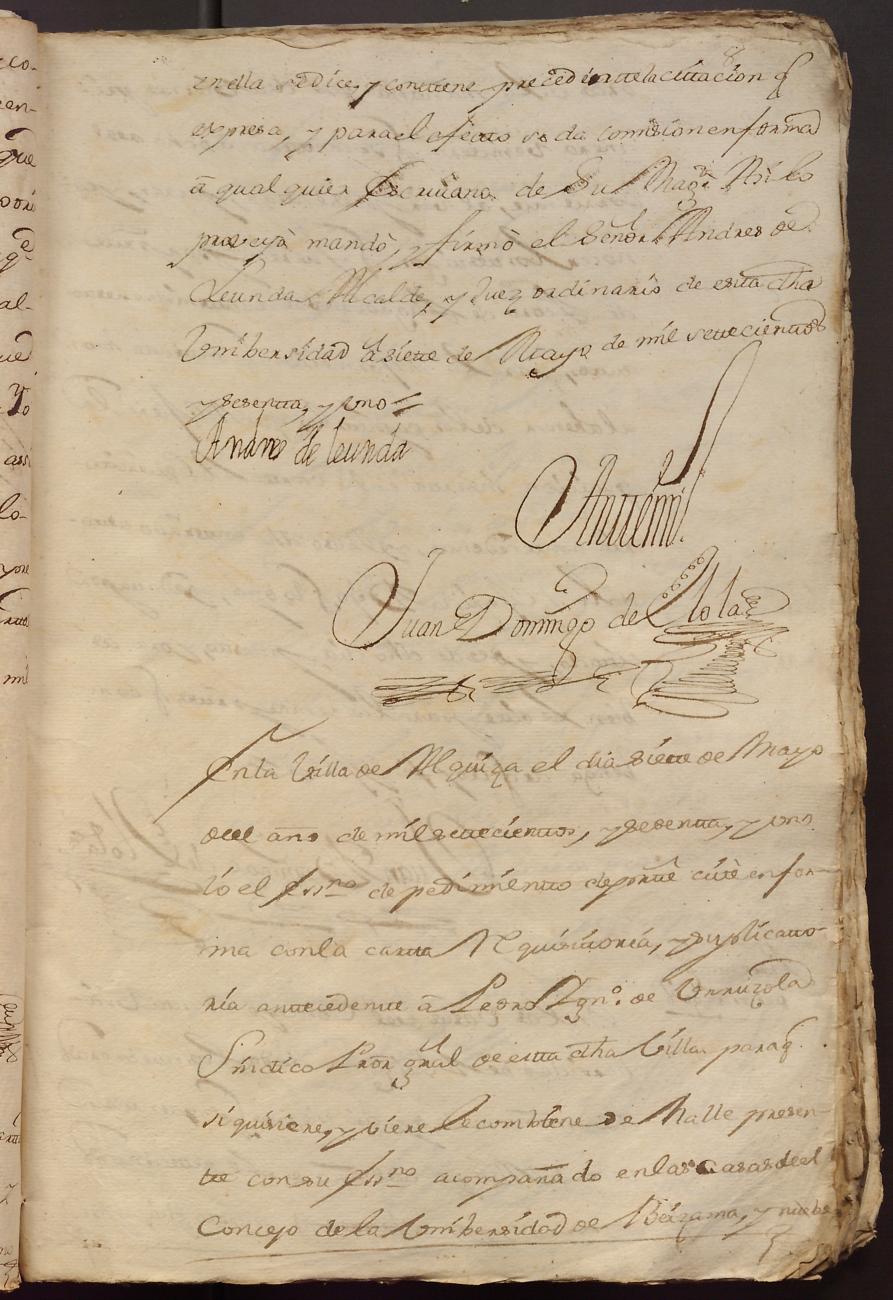 8
en ella se dice, y contiene precedin ttela cittacion q
expresa, y para el efecto se da comision en forma
â qual quier Escriuano de Su Magd. Asi lo
proveyò mandò, y firmò el Señor Andres de
Leunda Alcalde, y Juez ordinario de estta dha
Vnibersidad â siette de Mayo de mil settecienttos
y sesentta, y uno =
Andres de leunda
Antte mi
Juan Domingo de Olola
En la Villa de Alquiza el dia siette de Mayo
de el ano de mil settecienttos, y sesentta, y uno
Yo el Essno de pedimientto de partte cittè en for-
ma con la cartta Requisittoria, y suplicatto-
ria anttecedentte â Pedro Ygno. de Vrruzola
Sindico Pror gral de estta dha Villa para q.
si quisiere, y viere le combiene se Halle presen-
tte con su Essno acompañado en las Casas de el
Concejo de la Vnibersidad de Beizama, y nuebe